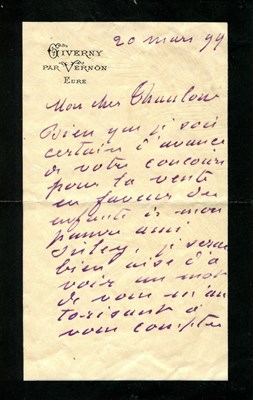 20 mars 99
GIVERNY
PAR VERNON
EURE
Mon cher Thaulow
Bien que je sois
certain d'avance
de votre concours
pour la vente
en faveur des
enfants de mon
pauvre ami
Sisley, je serai
bien aise d'a
voir un mot
de vous m'au
torisant à
vous compter